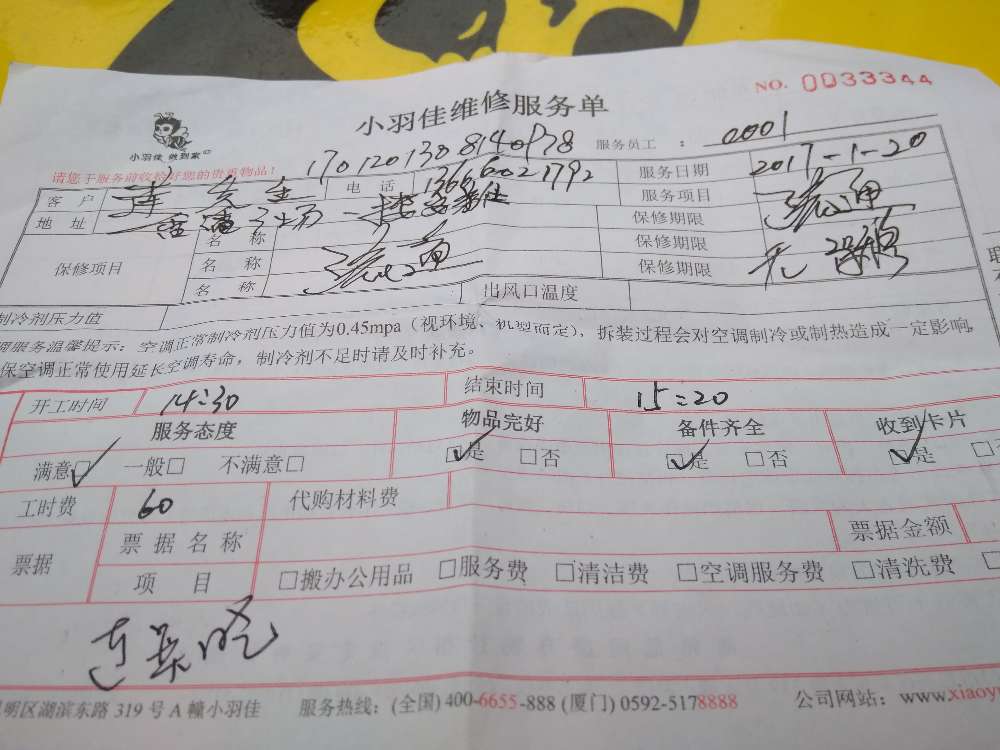 NO. 0033344
小羽佳维修服务单
小羽佳 做到家
服务员工 : 0001
请您于服务前收拾好您的贵重物品!
客户 女士 电话 13666021792 服务日期 2017-1-20
地址 服务项目 疏通
保修项目 名称 保修期限
名称 疏通 保修期限 无
名称 保修期限
制冷剂压力值 出风口温度
调服务温馨提示:空调正常制冷剂压力值为0.45mpa(视环境、机型而定),拆装过程会对空调制冷或制热造成一定影响,
保空调正常使用延长空调寿命,制冷剂不足时请及时补充。
开工时间 14:30 结束时间 15:20
服务态度 物品完好 备件齐全 收到卡片
满意□ 一般□ 不满意□ □是 □否 □是 □否 □是
工时费 60 代购材料费
票据 票据名称 票据金额
项目 □搬办公用品 □服务费 □清洁费 □空调服务费 □清洗费
明区湖滨东路 319 号 A 幢小羽佳 服务热线:(全国) 400-6655-888 (厦门) 0592-5178888 公司网站:www.xiaoy